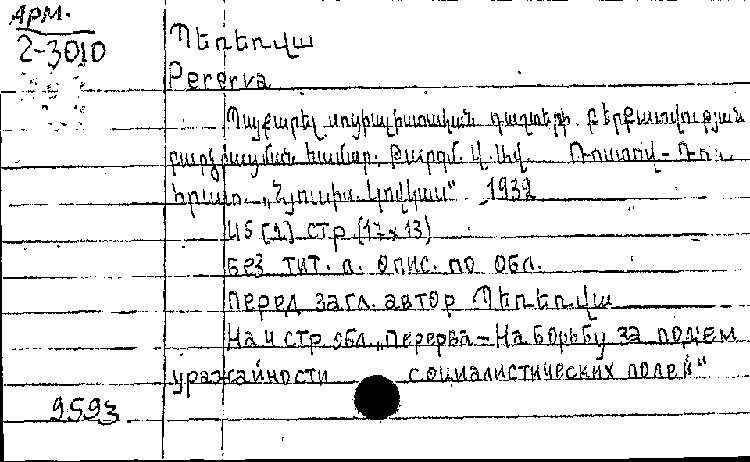 Арм.
2-3010
Պերերվա
Pererva
Պայքարել սոցիալիստական դաշտերի բերքատվության
բարձրացման համար. Թարգմ. Ռոստով-Դոն
հրատ. „Հյուսիս. Կովկաս“ 1932
45 [1] стр (17x13)
Без тит. л. Опис. по обл.
Перед загл. автор Պերերվա
На 4 стр обл. „Перерва – На борьбу за подъем
урожайности социалистических полей“
9593